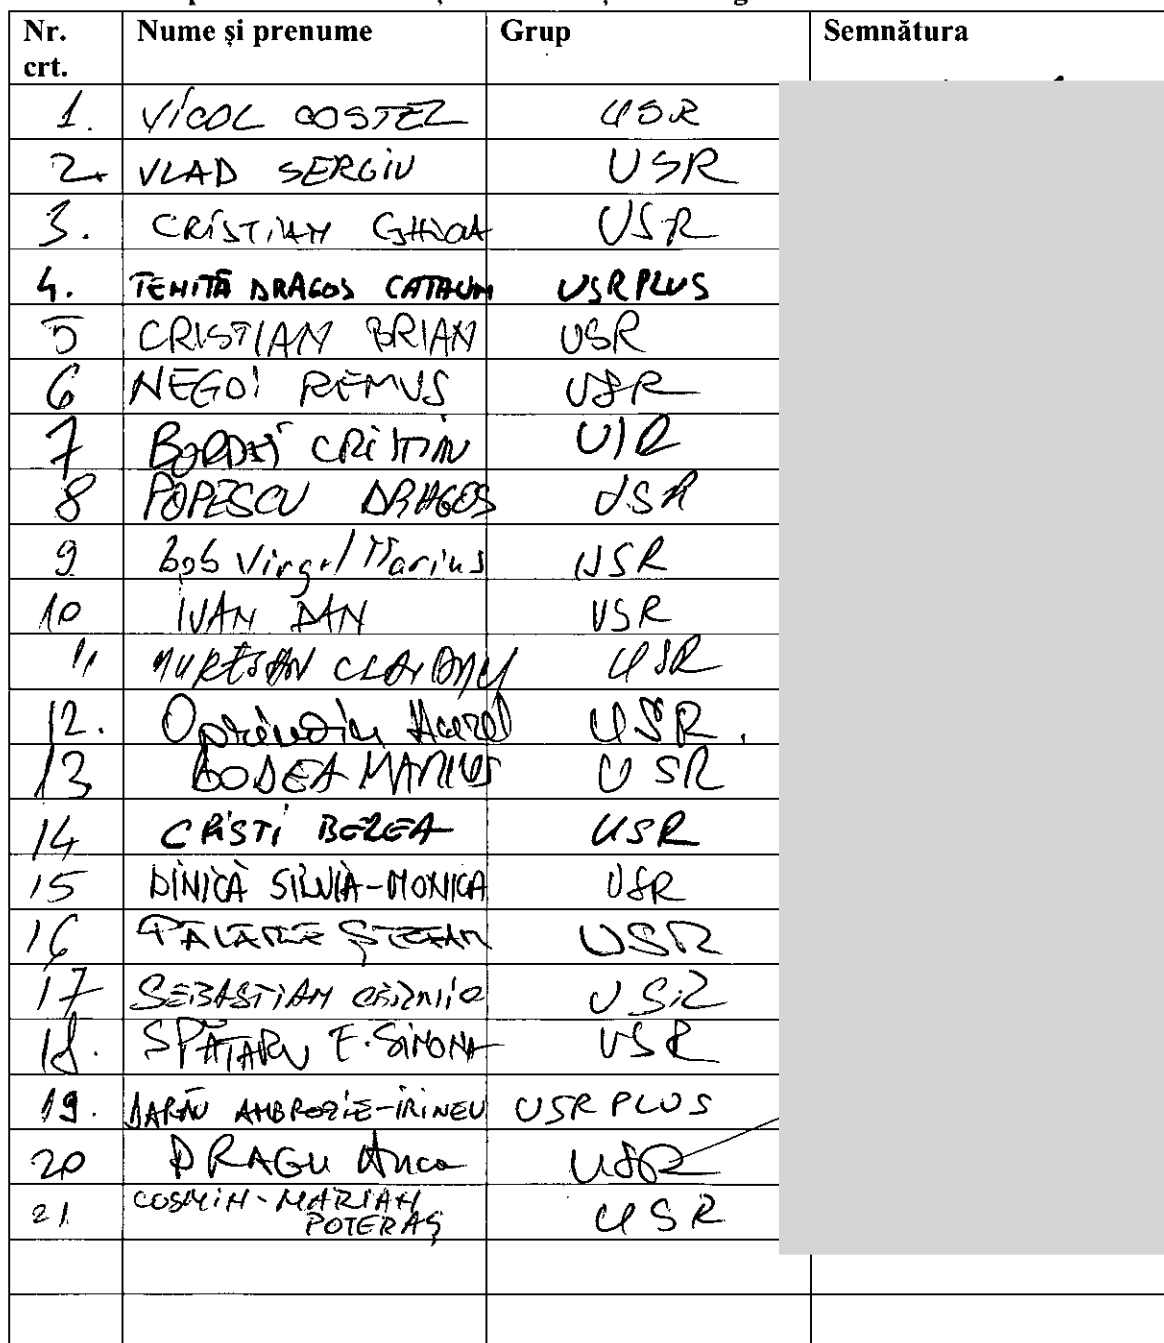 Nr. crt. Nume și prenume Grup Semnătura
1. VICOL COSTEL USR
2. VLAD SERGIU USR
3. CRISTIAN GHICA USR
4. TENITĂ DRAGOS CATALIN USR PLUS
5 CRISTIAN BRIAN USR
6 NEGOI REMUS USR
7 BORDEI CRISTIAN USR
8 POPESCU DRAGOS USR
9 Bob Virgil Marius USR
10 IVAN DAN USR
11 MURESAN CLAUDIU USR
12. Oprinoiu Aurel USR.
13 BODEA MARIUS USR
14 CRISTI BEREA USR
15 DINICĂ SILVIA-MONICA USR
16 PĂLĂRIE ȘTEFAN USR
17 SEBASTIAN CERNIC USR
18. SPĂTARU E. SIMONA USR
19. DARĂU AMBROZIE-IRINEU USR PLUS
20 DRAGU Anca USR
21 COSMIN-MARIAN POTERAȘ USR